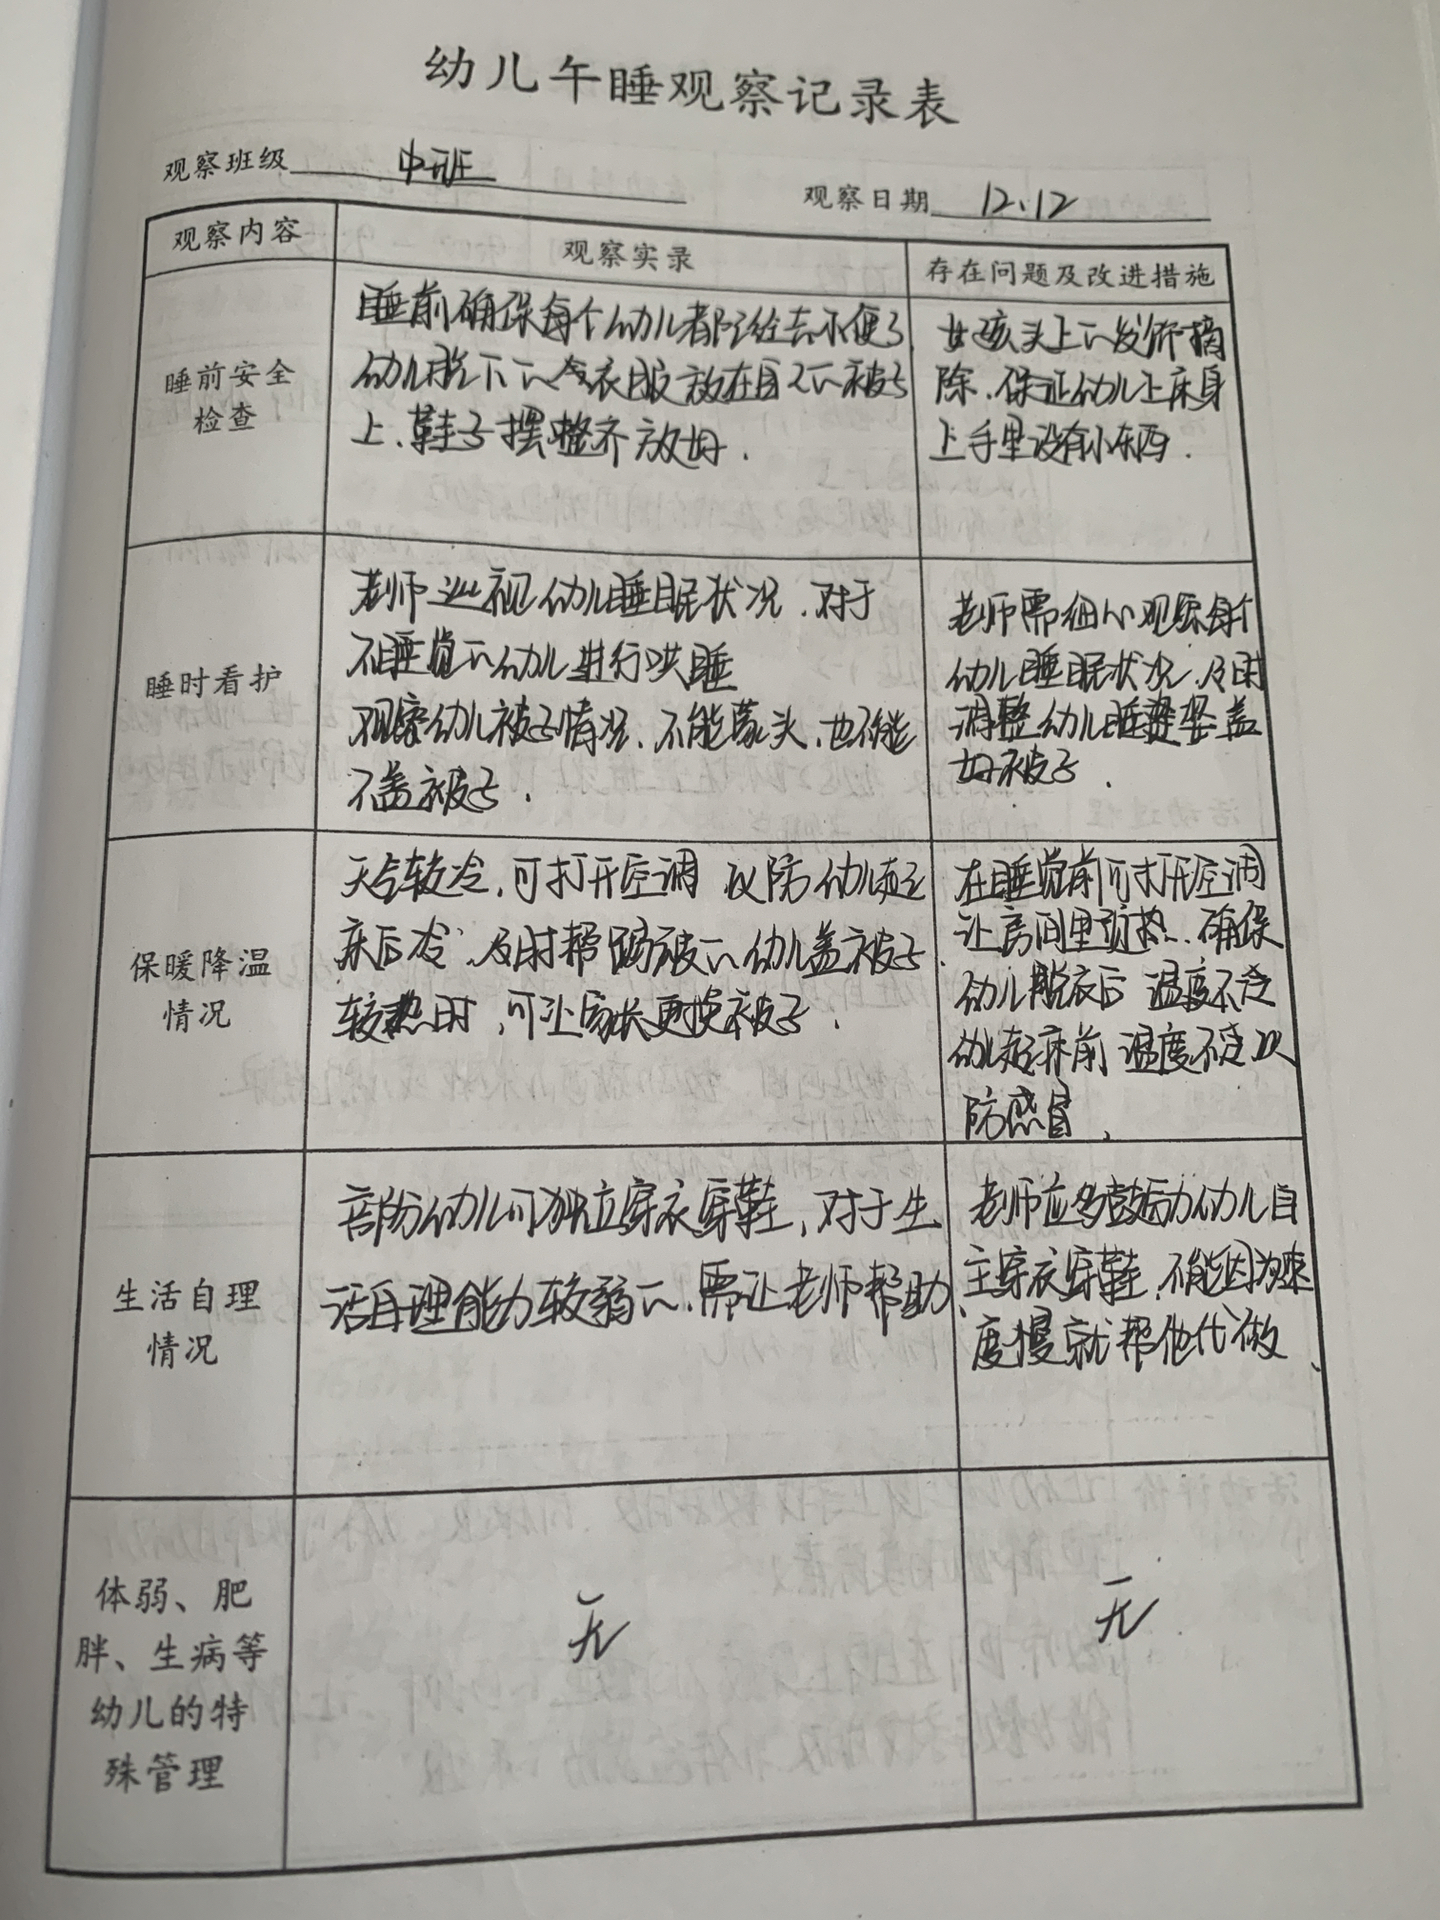 幼儿午睡观察记录表
观察班级 中班
观察日期 12.12
观察内容
观察实录
存在问题及改进措施
睡前安全
检查
睡前确保每个幼儿都已经去小便了
幼儿脱下的衣服放在自己的被子
上、鞋子摆整齐放好.
女孩头上的发饰摘
除、保证幼儿上床身
上手里没有小东西.
睡时看护
老师巡视幼儿睡眠状况、对于
不睡觉的幼儿进行哄睡
观察幼儿被子情况、不能蒙头、也不能
不盖被子.
老师需细心观察每个
幼儿睡眠状况、及时
调整幼儿睡姿 盖
好被子.
保暖降温
情况
天气较冷,可打开空调 以防幼儿起
床后冷、及时帮踢被的幼儿盖被子
较热时,可让家长更换被子.
在睡觉前可打开空调
让房间里预热、确保
幼儿脱衣后 温度不冷
幼儿起床前 温度不冷 以
防感冒.
生活自理
情况
部份幼儿可独立穿衣穿鞋,对于生
活自理能力较弱的、需让老师帮助
老师应多鼓励幼儿自
主穿衣穿鞋、不能因为速
度慢就帮他代做、
体弱、肥
胖、生病等
幼儿的特
殊管理
无
无